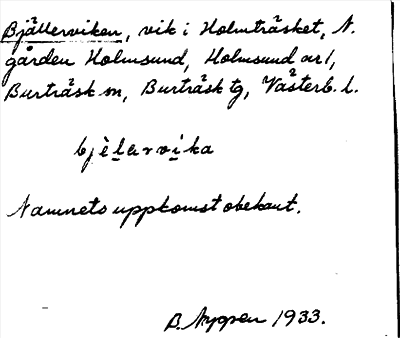 Bjällerviken, vik i Holmträsket, N.
gården Holmsund, Holmsund ar/,
Burträsk sn, Burträsk tg, Västerb. l.
bjèlarvika
Namnets uppkomst obekant.
B. Nyppen 1933.